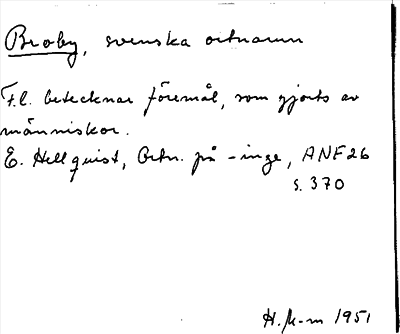 Broby, svenska ortnamn
F.l. betecknar föremål, som gjorts av
människor.
E. Hellquist, Ortn. på -inge, ANF 26
s. 370
H. M-m 1951